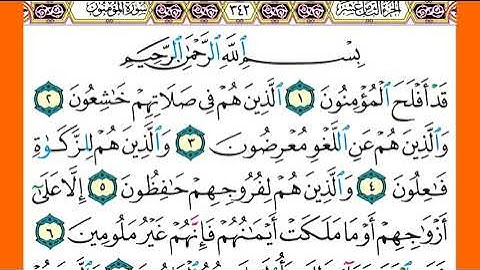 سُورَةُ المُؤْمِنُونَ ٣٤٢ الجُزْءُ الثَّامِنَ عَشَرَ
بِسْمِ ٱللَّهِ ٱلرَّحْمَٰنِ ٱلرَّحِيمِ
قَدْ أَفْلَحَ ٱلْمُؤْمِنُونَ ١ ٱلَّذِينَ هُمْ فِى صَلَاتِهِمْ خَٰشِعُونَ ٢
وَٱلَّذِينَ هُمْ عَنِ ٱللَّغْوِ مُعْرِضُونَ ٣ وَٱلَّذِينَ هُمْ لِلزَّكَوٰةِ
فَٰعِلُونَ ٤ وَٱلَّذِينَ هُمْ لِفُرُوجِهِمْ حَٰفِظُونَ ٥ إِلَّا عَلَىٰٓ
أَزْوَٰجِهِمْ أَوْ مَا مَلَكَتْ أَيْمَٰنُهُمْ فَإِنَّهُمْ غَيْرُ مَلُومِينَ ٦